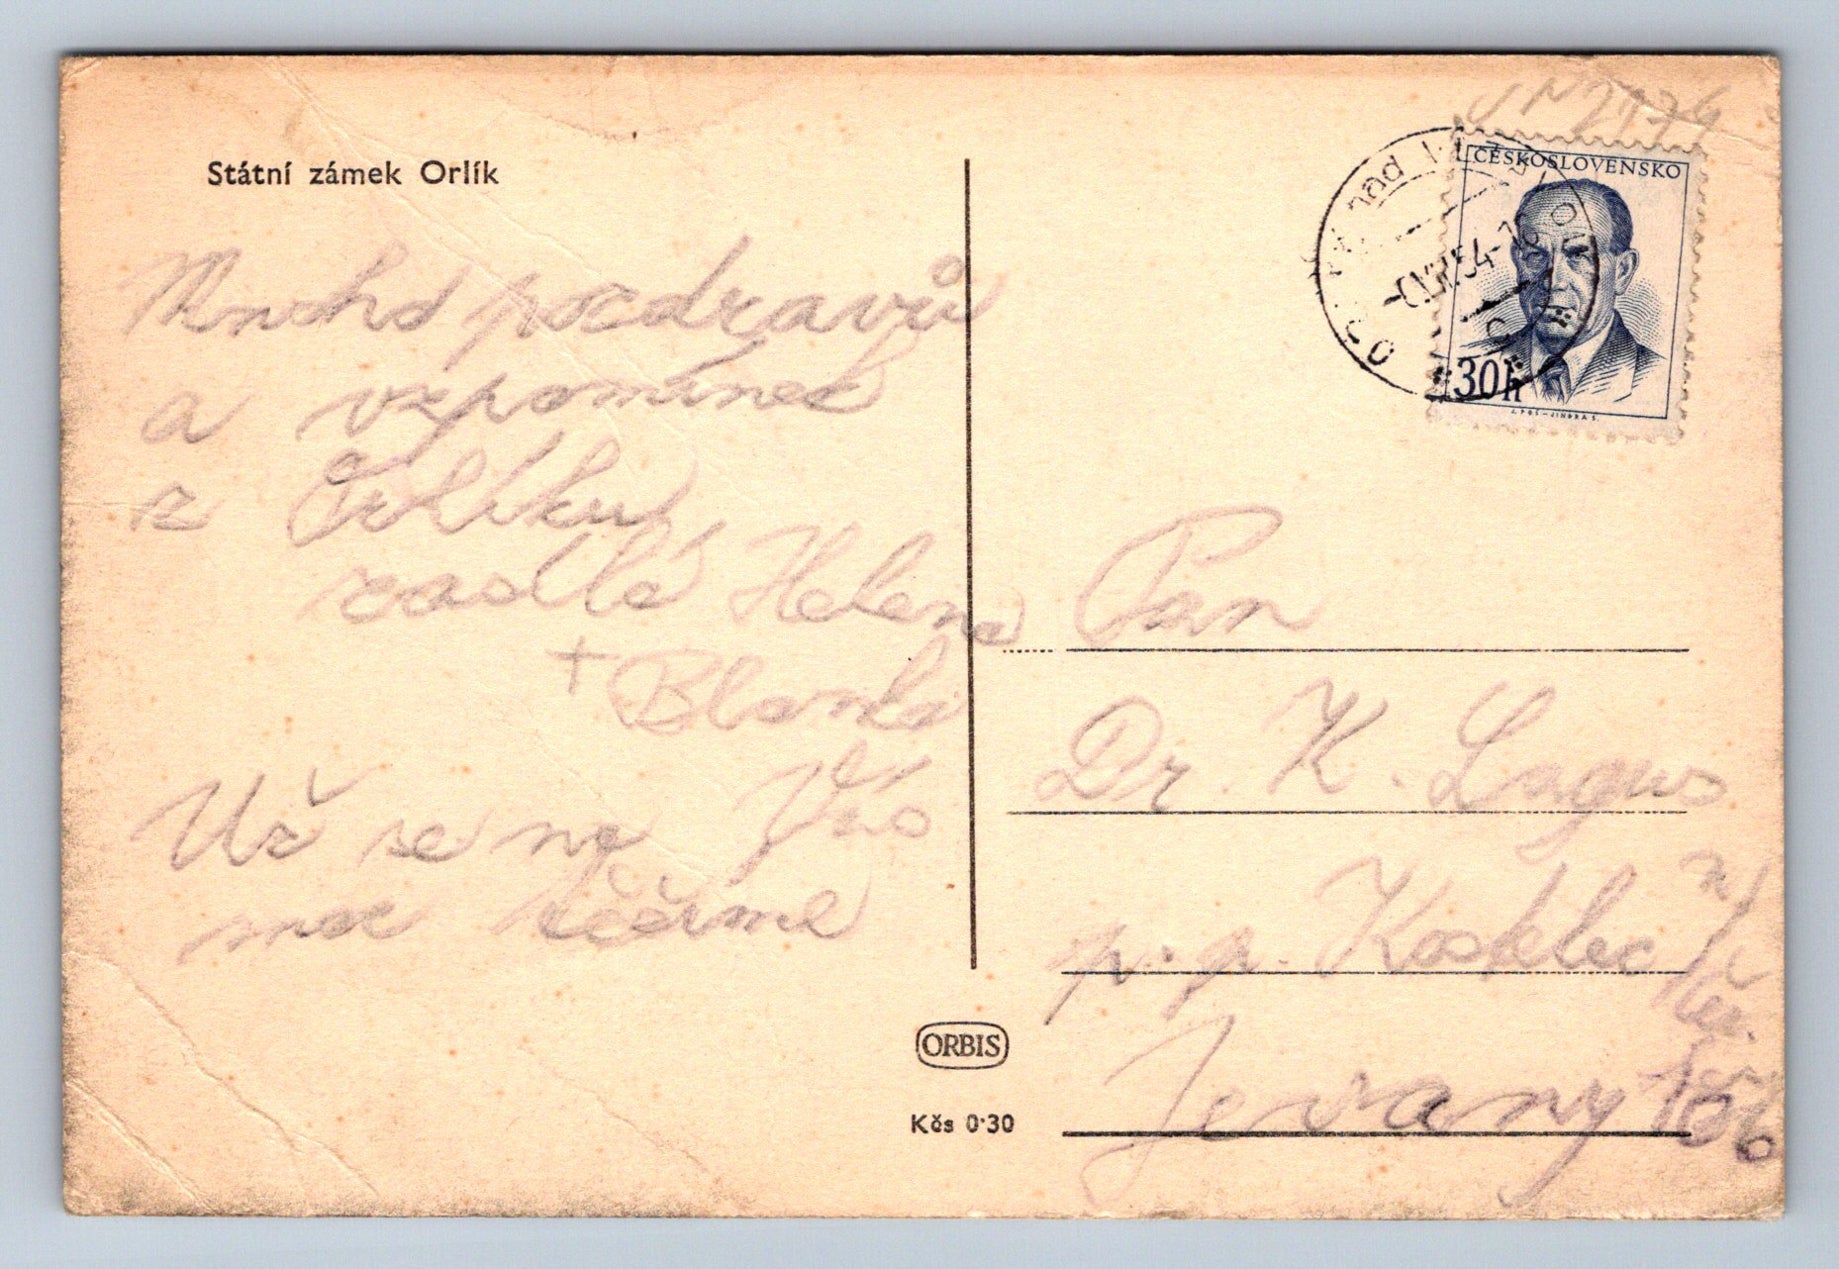 Státní zámek Orlík
Mnoho pozdravů
a vzpomínek
z Orlíku
zasílá Helena
+ Blanka
Už se na Vás
moc těšíme
ORBIS
Kčs 0·30
ČESKOSLOVENSKO
30h
J. POŠ - JINDRA S.
nad
54-18
Pan
Dr. K. Lagus
p. p. Kostelec n/
Jevany